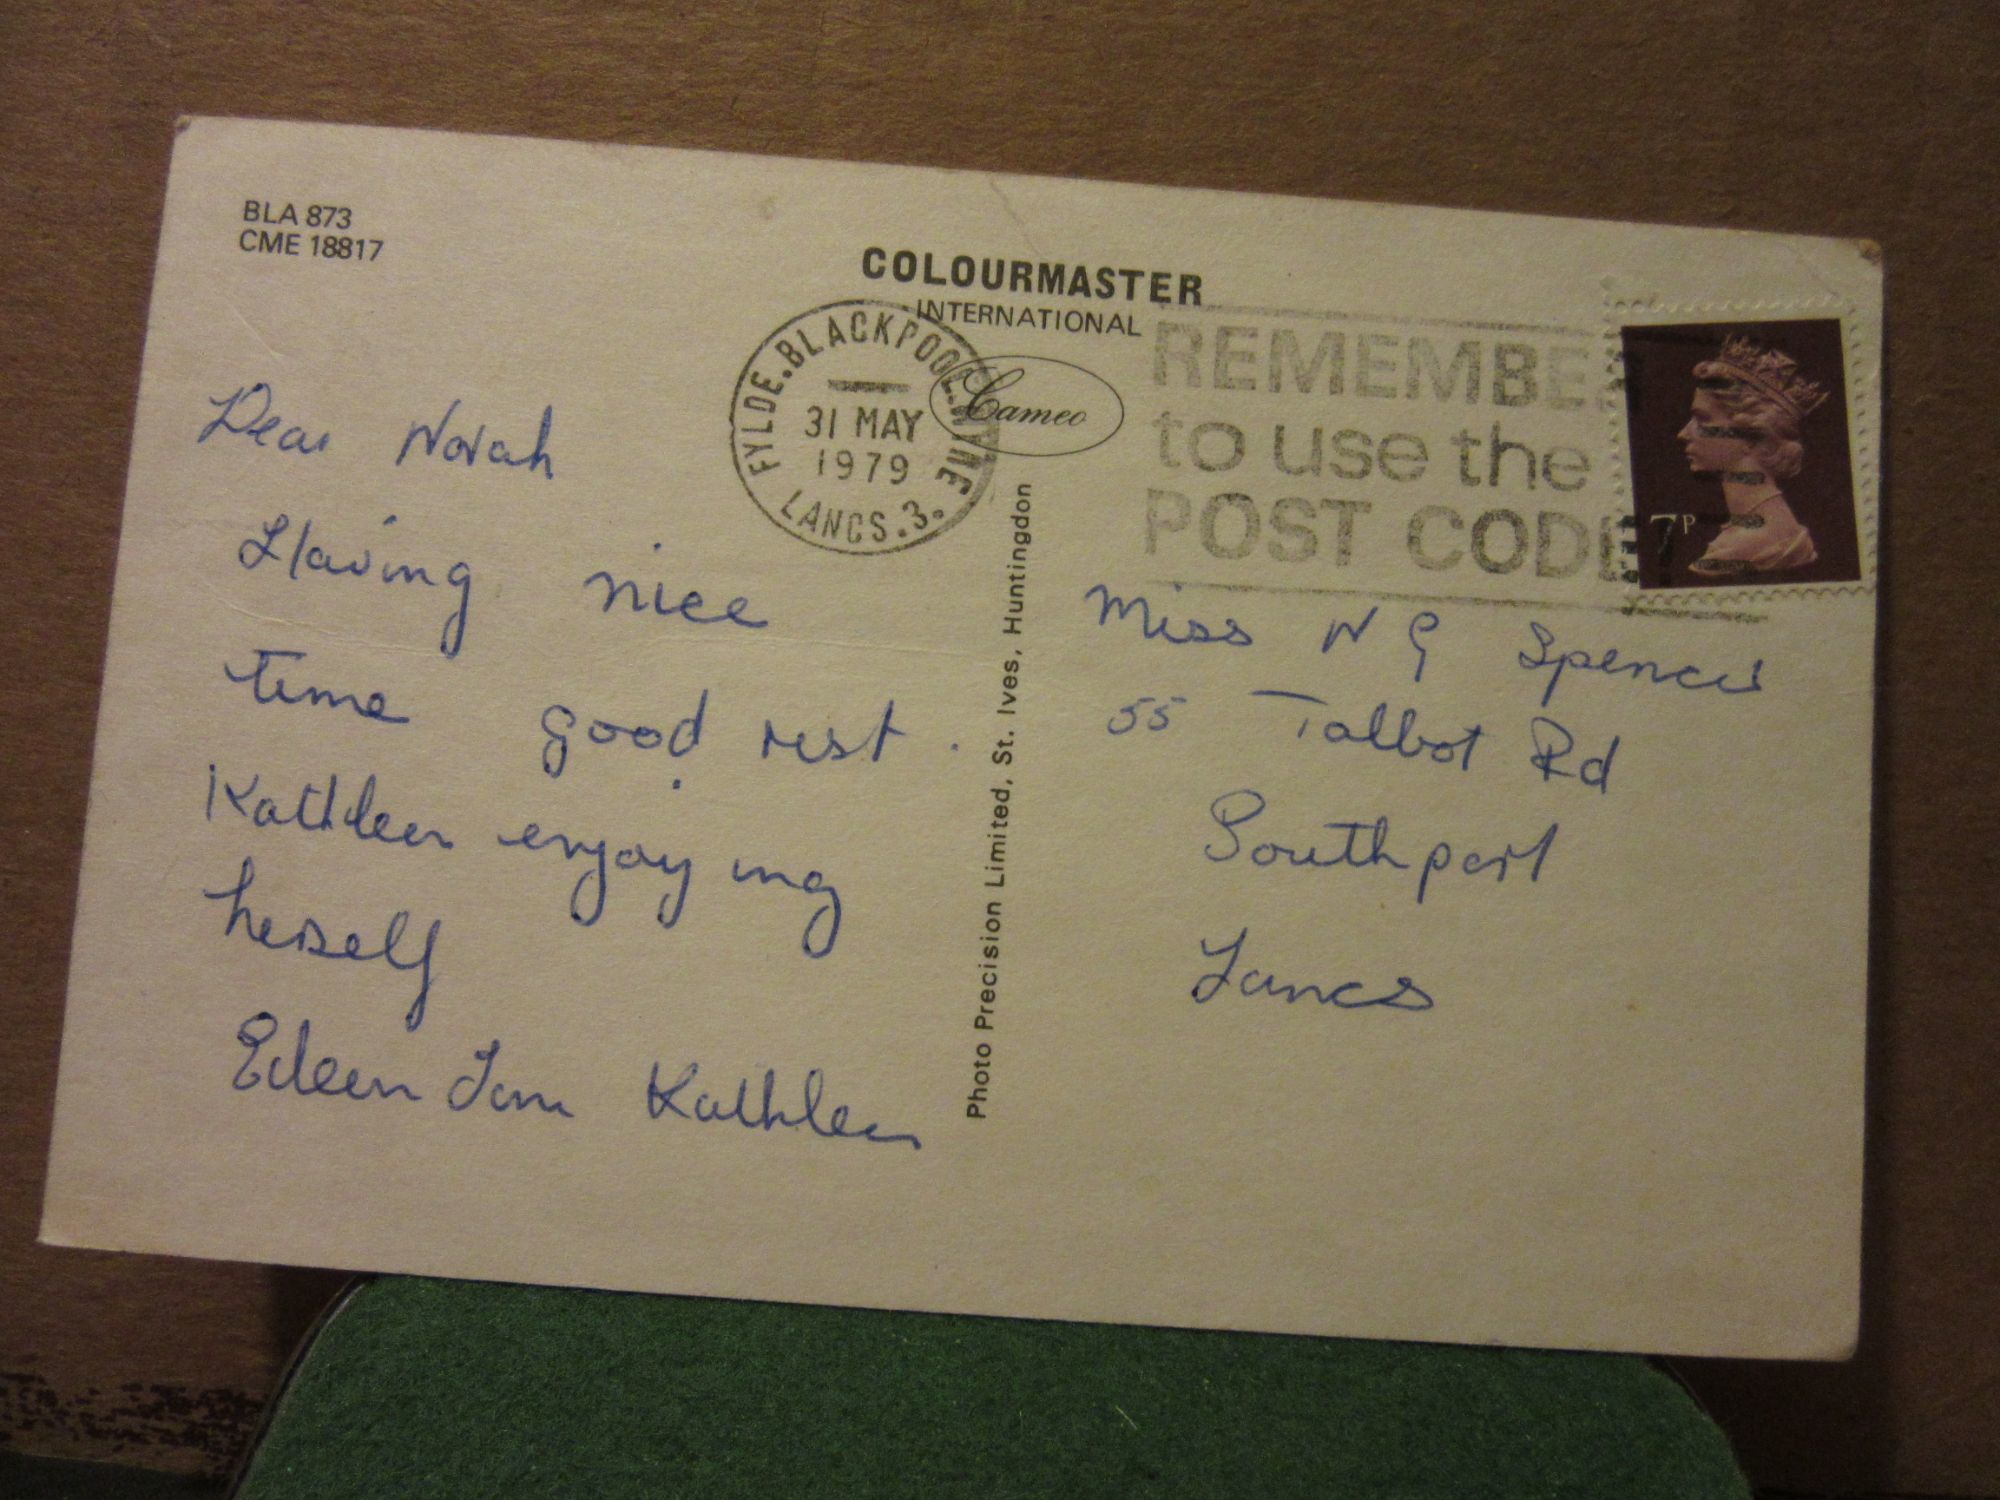 BLA 873
CME 18817
COLOURMASTER
INTERNATIONAL
Cameo
FYLDE.BLACKPOOL.WYRE
31 MAY
1979
LANCS.3.
REMEMBE
to use the
POST CODE
7P
Dear Norah
Having nice
time good rest.
Kathleen enjoying
herself
Eileen Tom Kathleen
Photo Precision Limited, St. Ives, Huntingdon
Miss N G Spencer
55 Talbot Rd
Southport
Lancs